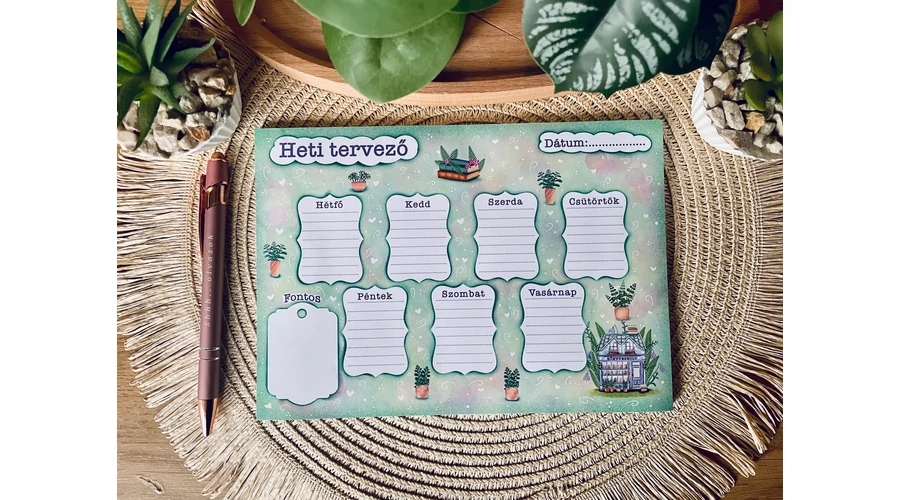 Heti tervező
Dátum:..................
Hétfő
Kedd
Szerda
Csütörtök
Fontos
Péntek
Szombat
Vasárnap
Shhh...olvasok